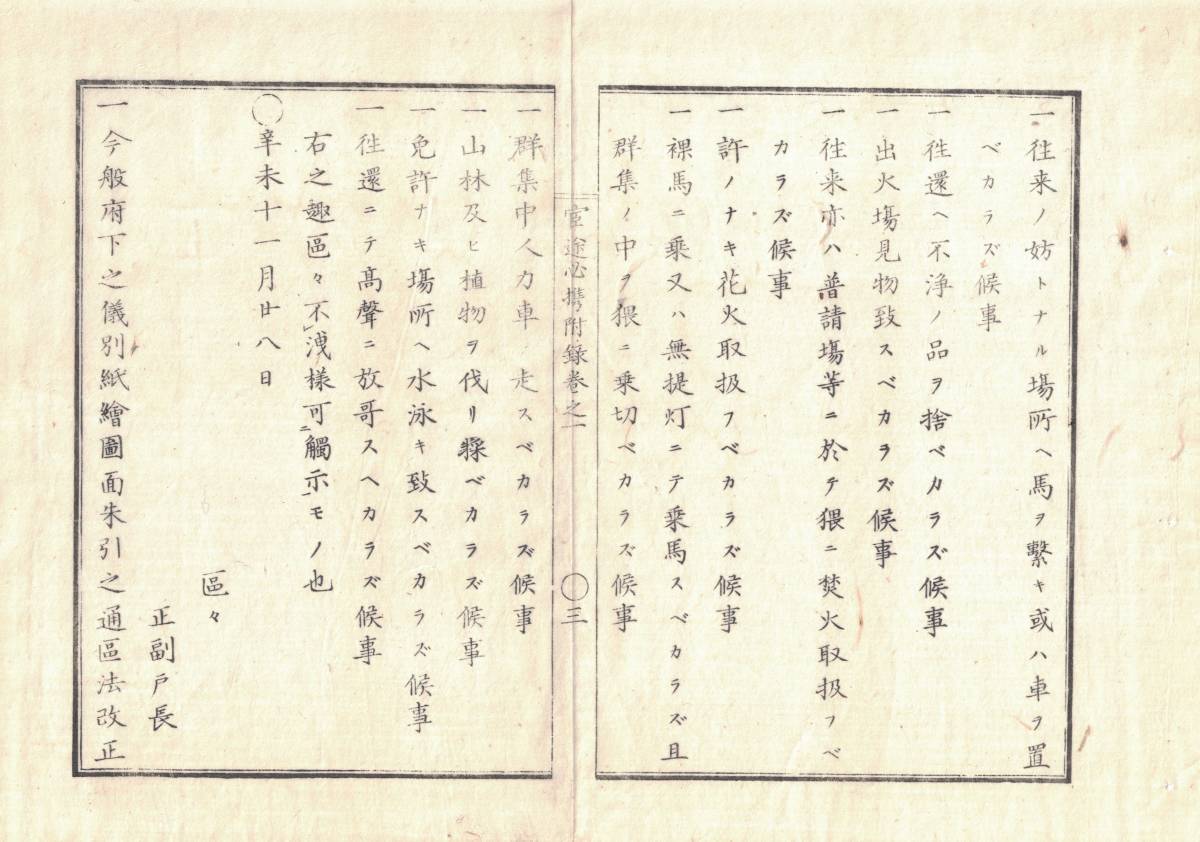 一徃来ノ妨トナル塲所ヘ馬ヲ繋キ或ハ車ヲ置
ベカラズ候事
一徃還ヘ不浄ノ品ヲ捨ベカラズ候事
一出火塲見物致スベカラズ候事
一徃来亦ハ普請塲等ニ於テ猥ニ焚火取扱フベ
カラズ候事
一許ノナキ花火取扱フベカラズ候事
一裸馬ニ乗又ハ無提灯ニテ乗馬スベカラズ且
群集ノ中ヲ猥ニ乗切ベカラズ候事
官途必携附録巻之一 〇三
一群集中人力車ノ走スベカラズ候事
一山林及ヒ植物ヲ伐リ採ベカラズ候事
一免許ナキ塲所ヘ水泳キ致スベカラズ候事
一徃還ニテ髙聲ニ放哥スヘカラズ候事
右之趣區々不洩様可觸示モノ也
〇辛未十一月廿八日
區々
正副戸長
一今般府下之儀別紙繪圖面朱引之通區法改正